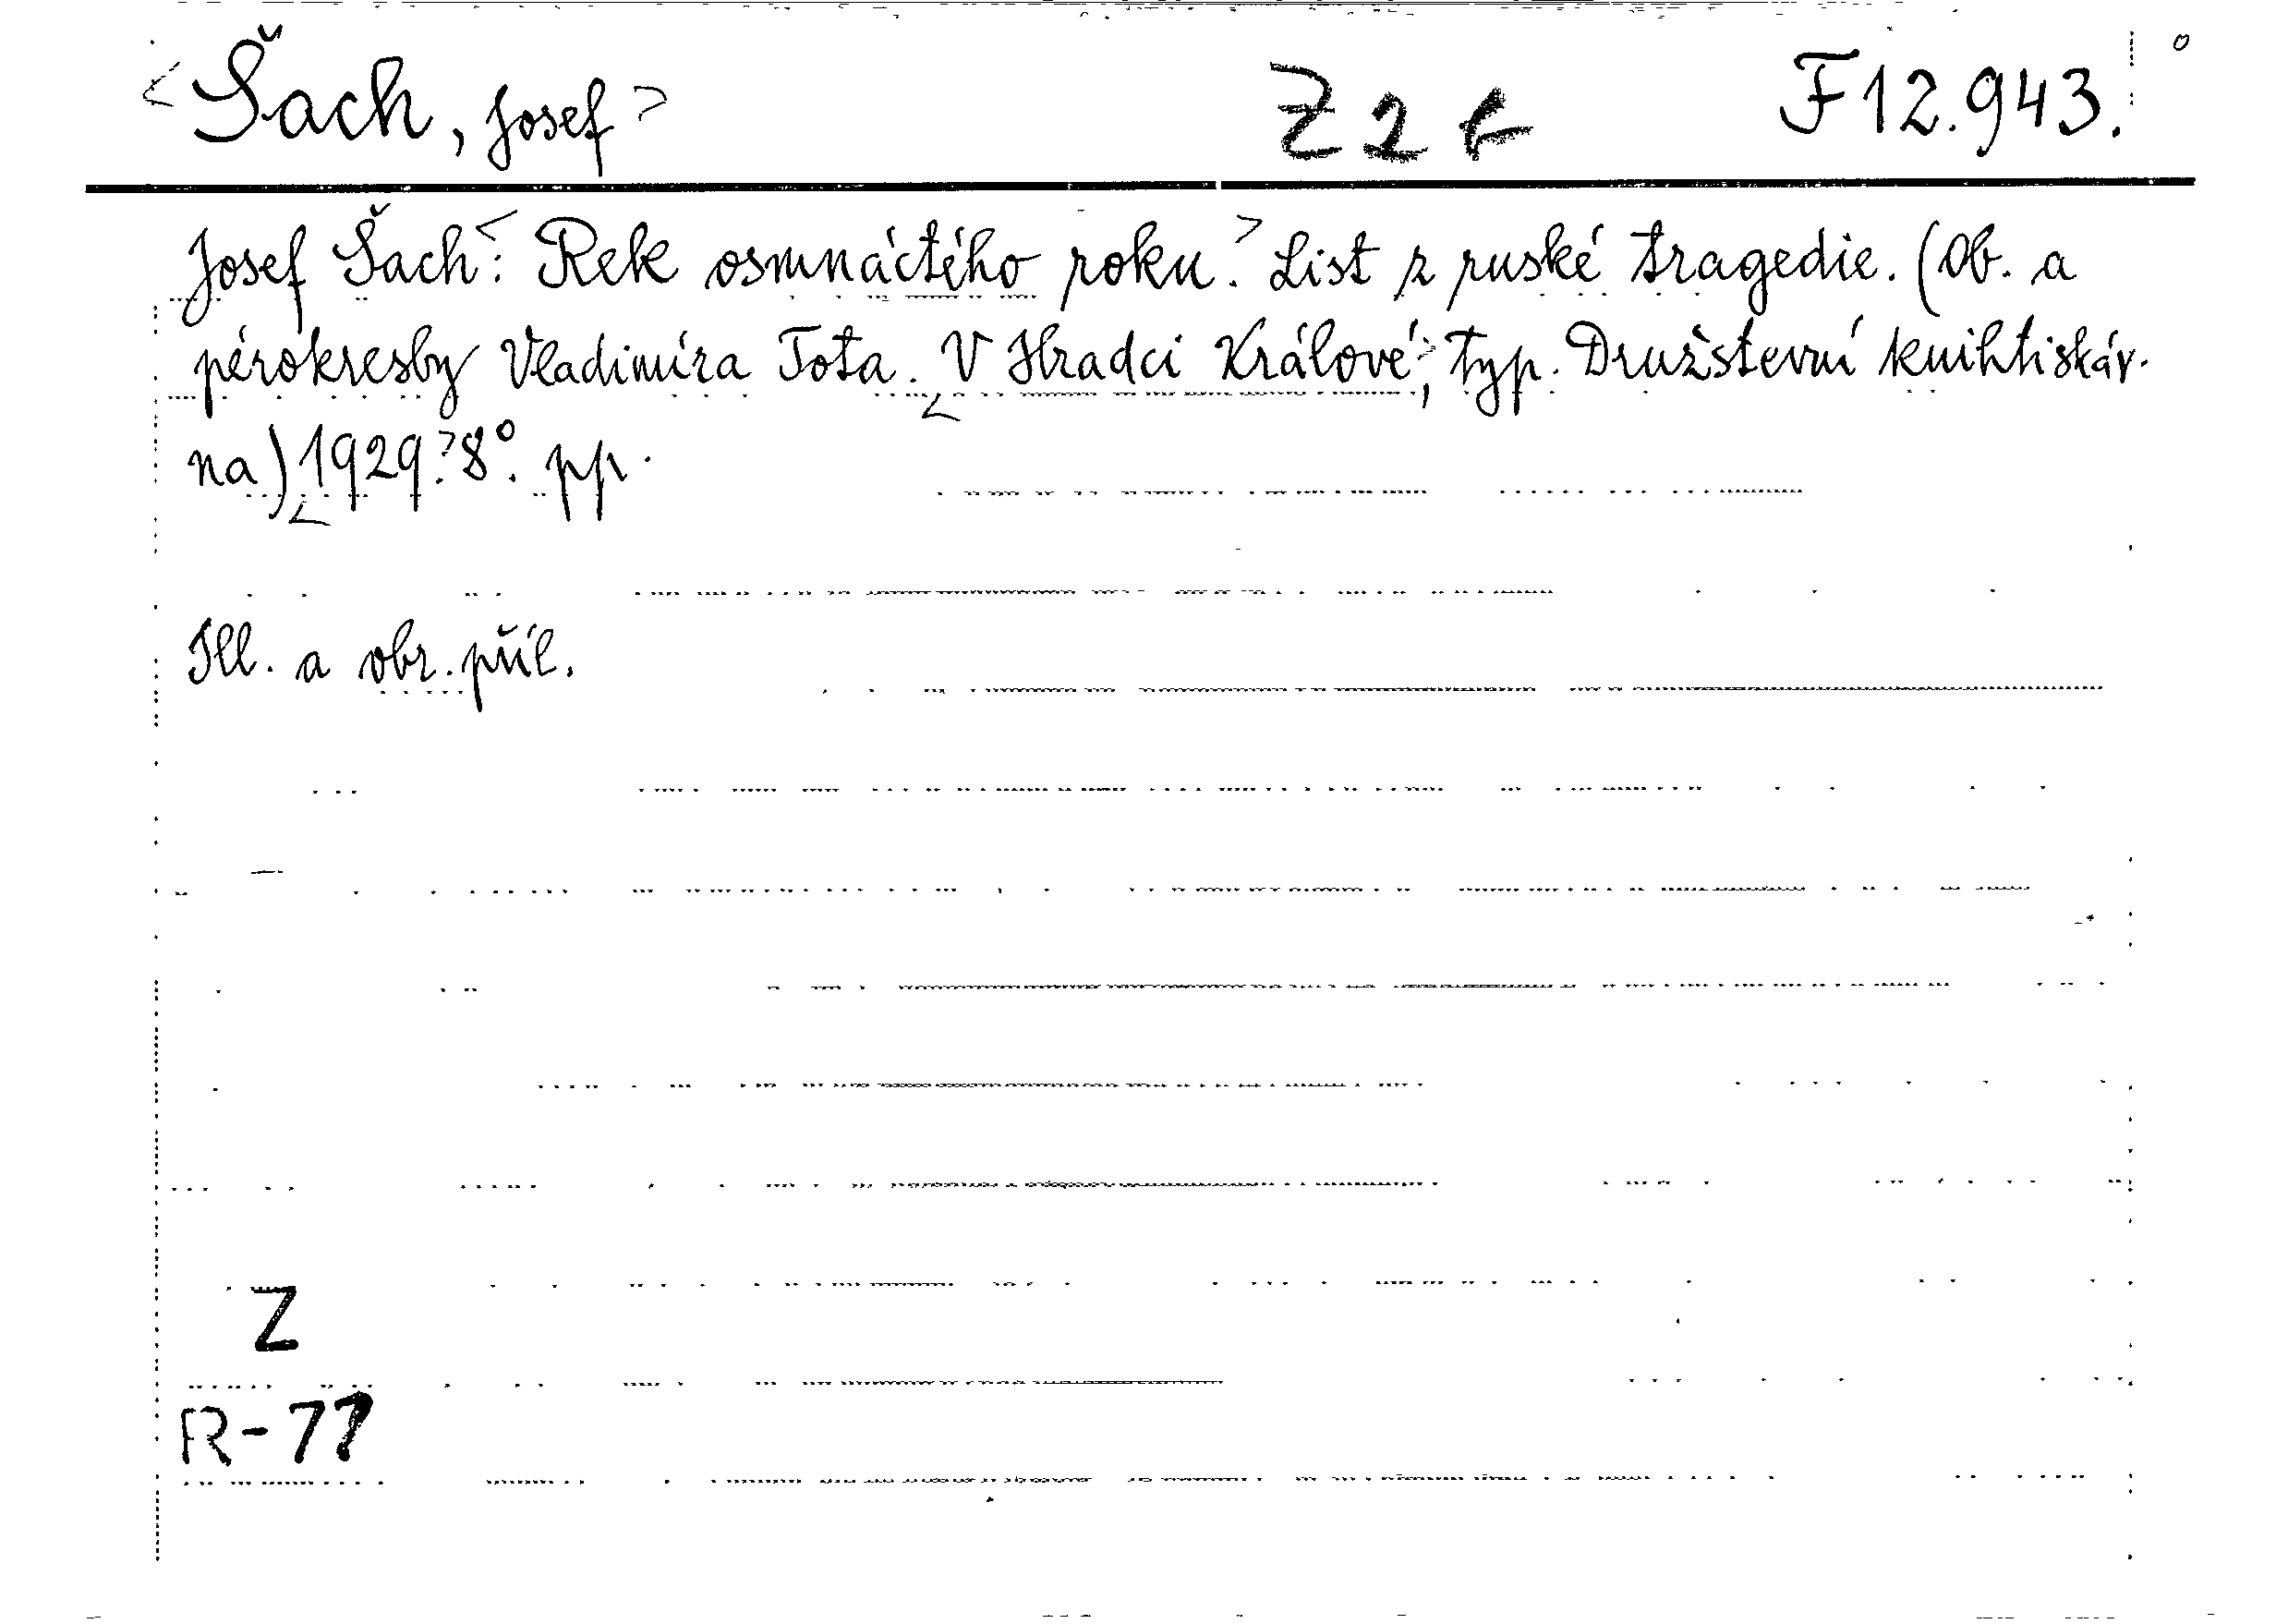 <Šach, Josef> Z 2 t F 12.943.
Josef Šach: <Rek osmnáctého roku.> List z ruské tragedie. (Ob. a
pérokresby Vladimíra Tota. <V Hradci Králové>, typ. Družstevní knihtiskár-
na) <1929.> 8°. pp.
Ill. a obr. příl.
Z
R-77